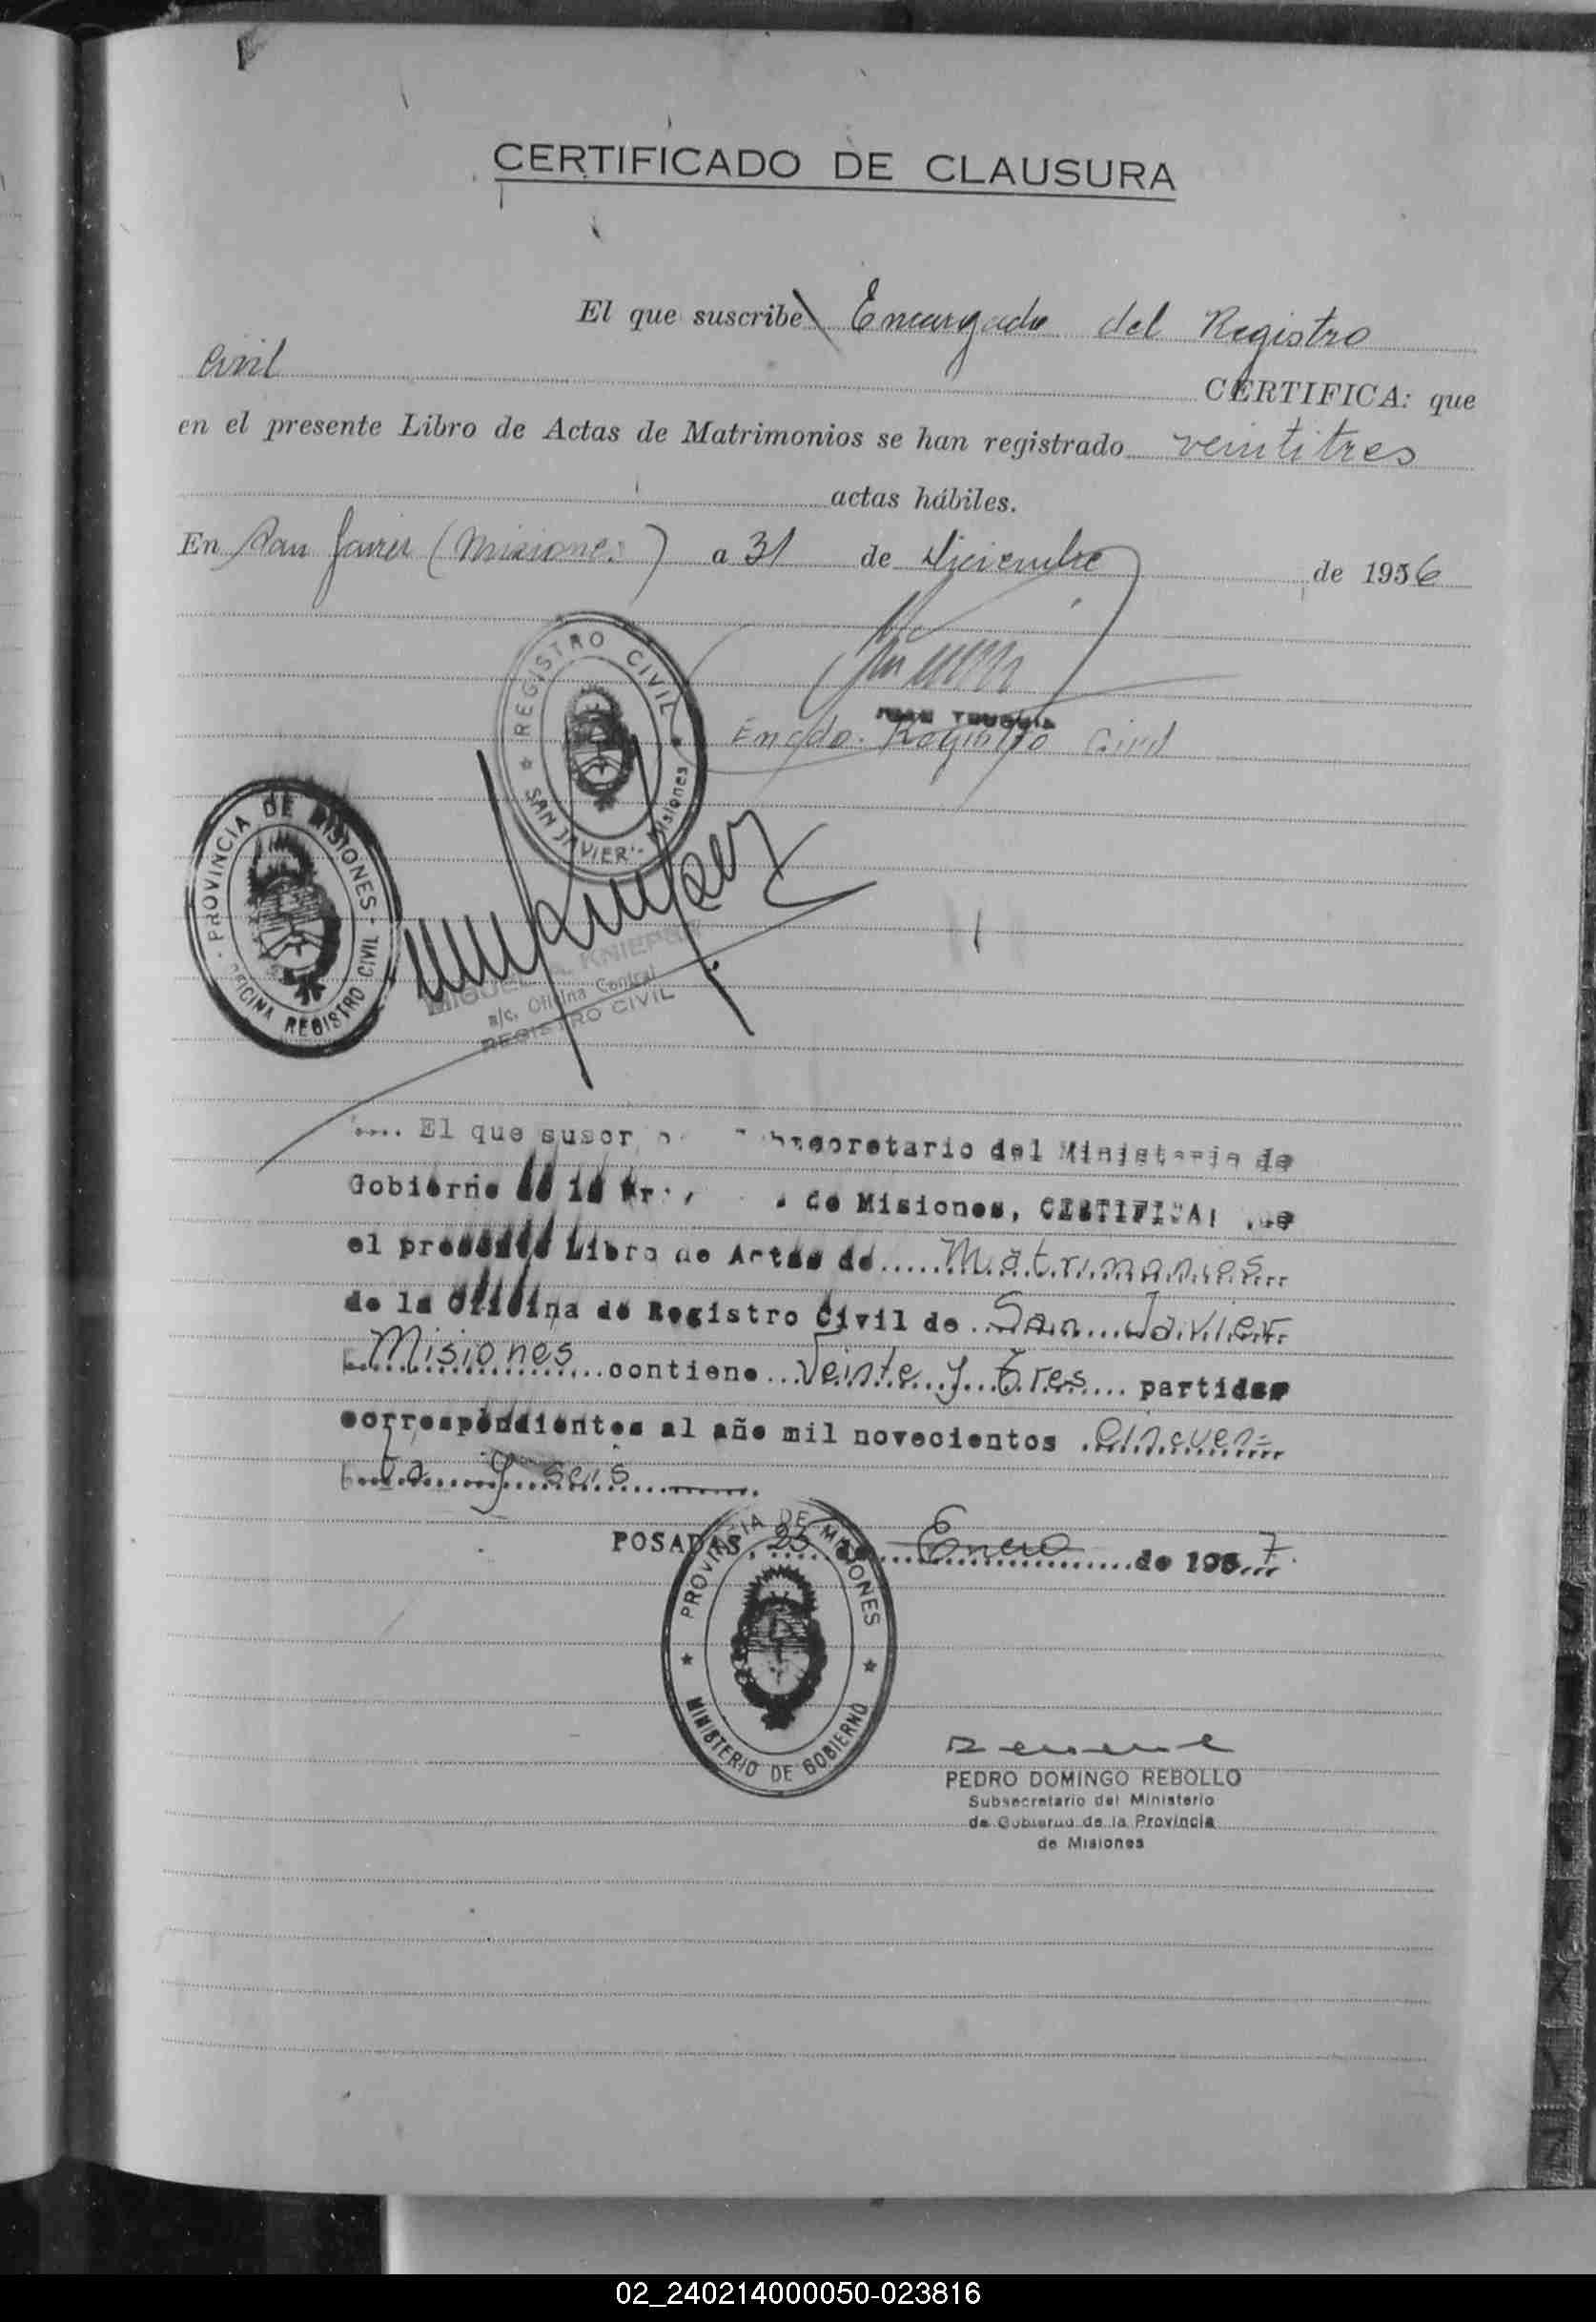 CERTIFICADO DE CLAUSURA
El que suscribe Encargado del Registro
Civil CERTIFICA: que
en el presente Libro de Actas de Matrimonios se han registrado veintitres
actas hábiles.
En San Javier (Misiones) a 31 de Diciembre de 1956
REGISTRO CIVIL
SAN JAVIER - Misiones
JUAN
Encdo. Registro Civil
PROVINCIA DE MISIONES
OFICINA REGISTRO CIVIL
MIGUEL
a/c. Oficina Central
REGISTRO CIVIL
El que suscr Subsecretario del Ministerio de
Gobierno de la de Misiones, CERTIFICA: que
el presente Libro de Actas de Matrimonios
de la Oficina de Registro Civil de San Javier
Misiones contiene Veinte y Tres partidas
correspondientes al año mil novecientos cincuen=
ta y seis
POSADAS, 25 de Enero de 1957.
PROVINCIA DE MISIONES
MINISTERIO DE GOBIERNO
PEDRO DOMINGO REBOLLO
Subsecretario del Ministerio
de Gobierno de la Provincia
de Misiones
02_240214000050-023816